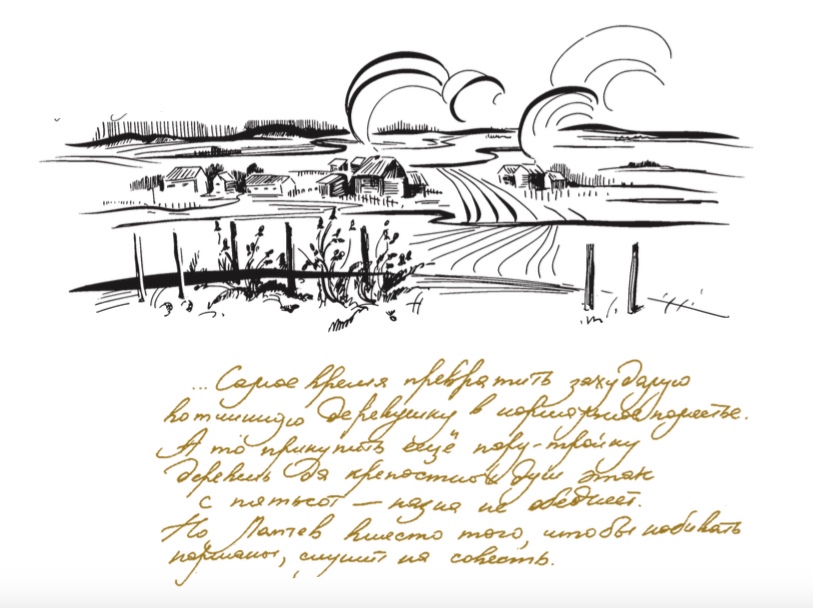 ... Самое время превратить захудалую
вотчинную деревушку в нормальное поместье.
А то прикупить ещё пару-тройку
деревень да крепостных душ этак
с пятьсот — казна не обеднеет.
Но Лаптев вместо того, чтобы набивать
карманы, служит на совесть.